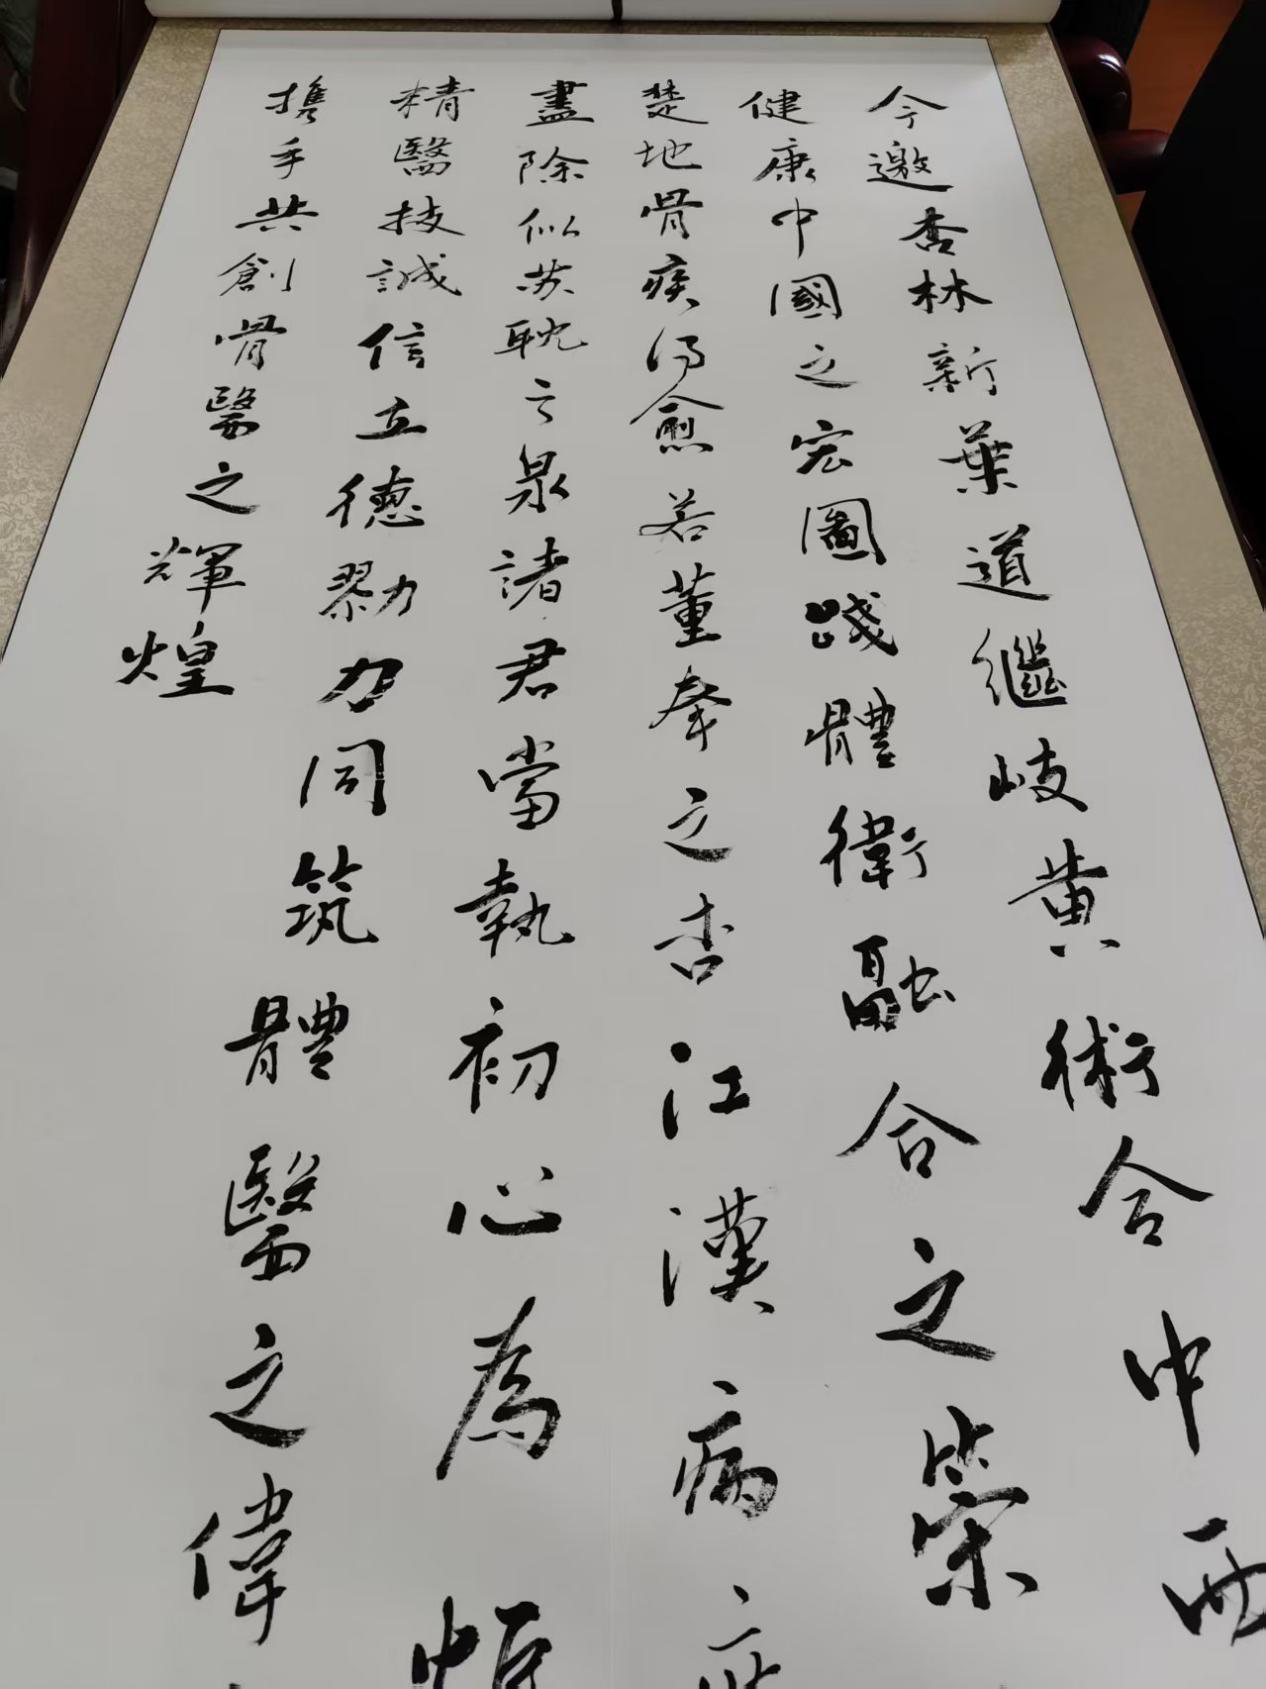 今邀杏林新葉道繼岐黄術合中西
健康中國之宏圖踐體衛融合之崇
楚地骨疾得愈若董奉之杏江漢病
盡除似苏耽之泉諸君當執初心為
精醫技誠信立德勠力同筑體醫之偉
携手共創骨醫之輝煌